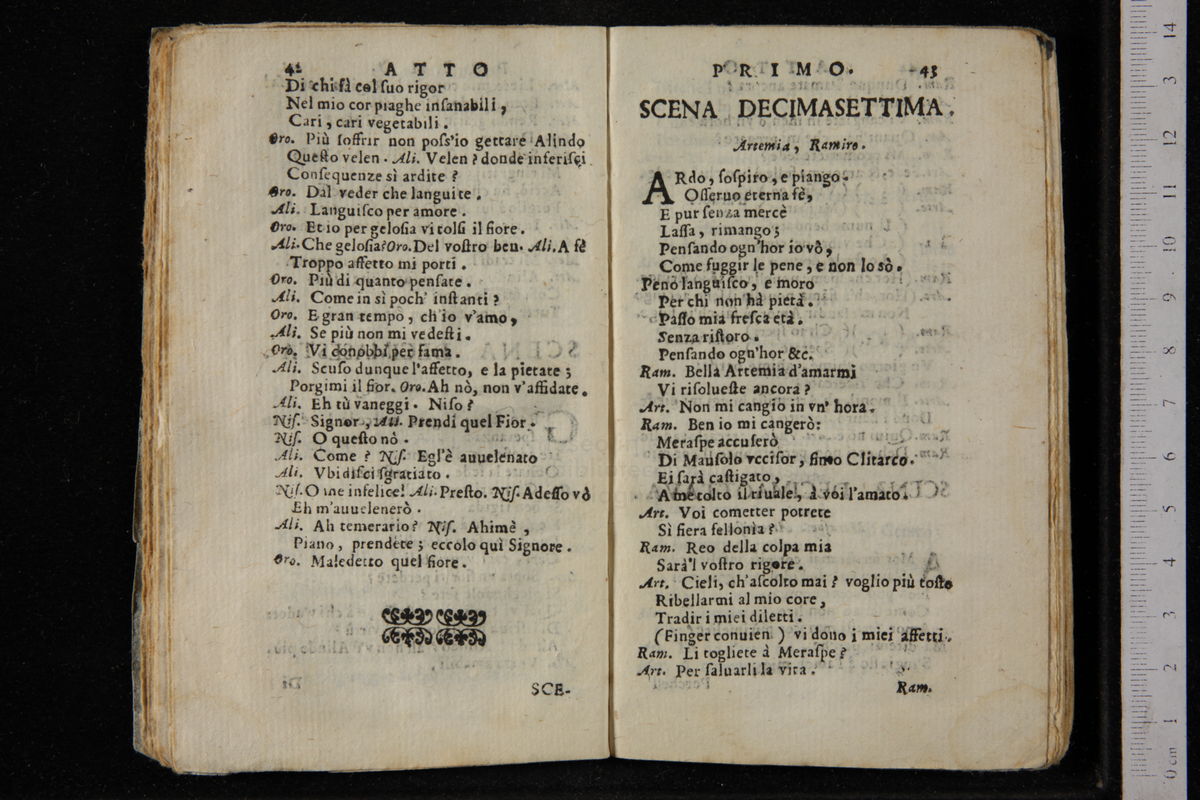 42 ATTO
Di chi fà col ſuo rigor
Nel mio cor piaghe inſanabili,
Cari, cari vegetabili.
Oro. Più ſoffrir non poſs'io gettare Alindo
Queſto velen. Ali. Velen? donde inferiſci
Conſequenze sì ardite?
Oro. Dal veder che languite.
Ali. Languiſco per amore.
Oro. Et io per geloſia vi tolſi il fiore.
Ali. Che geloſia? Oro. Del voſtro ben. Ali. A fè
Troppo affetto mi porti.
Oro. Più di quanto penſate.
Ali. Come in sì poch' inſtanti?
Oro. E gran tempo, ch'io v'amo,
Ali. Se più non mi vedeſti.
Oro. Vi conobbi per fama.
Ali. Scuſo dunque l'affetto, e la pietate;
Porgimi il fior. Oro. Ah nò, non v'affidate.
Ali. Eh tù vaneggi. Niſo?
Niſ. Signor, Ali. Prendi quel Fior.
Niſ. O queſto nò.
Ali. Come? Niſ. Egl'è auuelenato
Ali. Vbidiſci ſgratiato.
Niſ. O me infelice! Ali. Preſto. Niſ. Adeſſo vò
Eh m'auuelenerò.
Ali. Ah temerario? Niſ. Ahimè,
Piano, prendete; eccolo quì Signore.
Oro. Maledetto quel fiore.
SCE-
PRIMO. 43
SCENA DECIMASETTIMA.
Artemia, Ramiro.
ARdo, ſoſpiro, e piango.
Oſſeruo eterna fè,
E pur ſenza mercè
Laſſa, rimango;
Penſando ogn'hor io vò,
Come fuggir le pene, e non lo sò.
Peno languiſco, e moro
Per chi non hà pietà.
Paſſo mia freſca età.
Senza riſtoro.
Penſando ogn'hor &c.
Ram. Bella Artemia d'amarmi
Vi riſolueſte ancora?
Art. Non mi cangio in vn' hora.
Ram. Ben io mi cangerò:
Meraſpe accuſerò
Di Mauſolo vcciſor, finto Clitarco.
Ei ſarà caſtigato,
A me tolto il riuale, à voi l'amato.
Art. Voi cometter potrete
Sì fiera fellonia?
Ram. Reo della colpa mia
Sarà'l voſtro rigore.
Art. Cieli, ch'aſcolto mai? voglio più toſto
Ribellarmi al mio core,
Tradir i miei diletti.
(Finger conuien) vi dono i miei affetti.
Ram. Li togliete à Meraſpe?
Art. Per ſaluarli la vita.
Ram.
0 cm 1 2 3 4 5 6 7 8 9 10 11 12 3 14